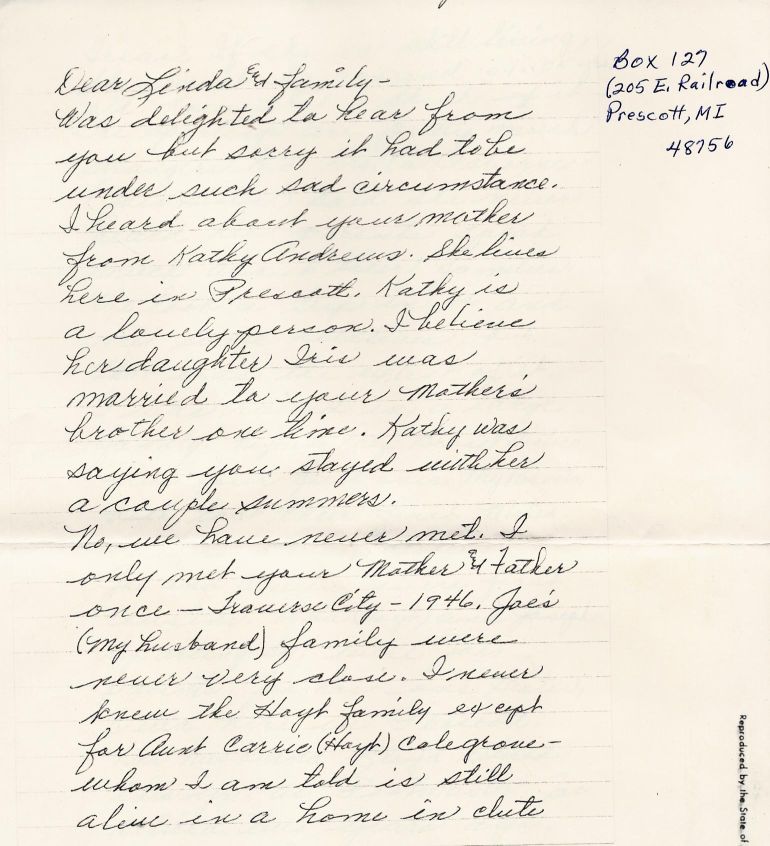 Box 127
(205 E. Railroad)
Prescott, MI
48756
Dear Linda & family-
Was delighted to hear from
you but sorry it had to be
under such sad circumstance.
I heard about your mother
from Kathy Andrews. She lives
here in Prescott. Kathy is
a lovely person. I believe
her daughter Iris was
married to your Mother's
brother one time. Kathy was
saying you stayed with her
a couple summers.
No, we have never met. I
only met your Mother & Father
once – Traverse City – 1946. Joe's
(my husband) family were
never very close. I never
knew the Hoyt family except
for Aunt Carrie (Hoyt) Colegrove–
whom I am told is still
alive in a home in
Reproduced by the State of